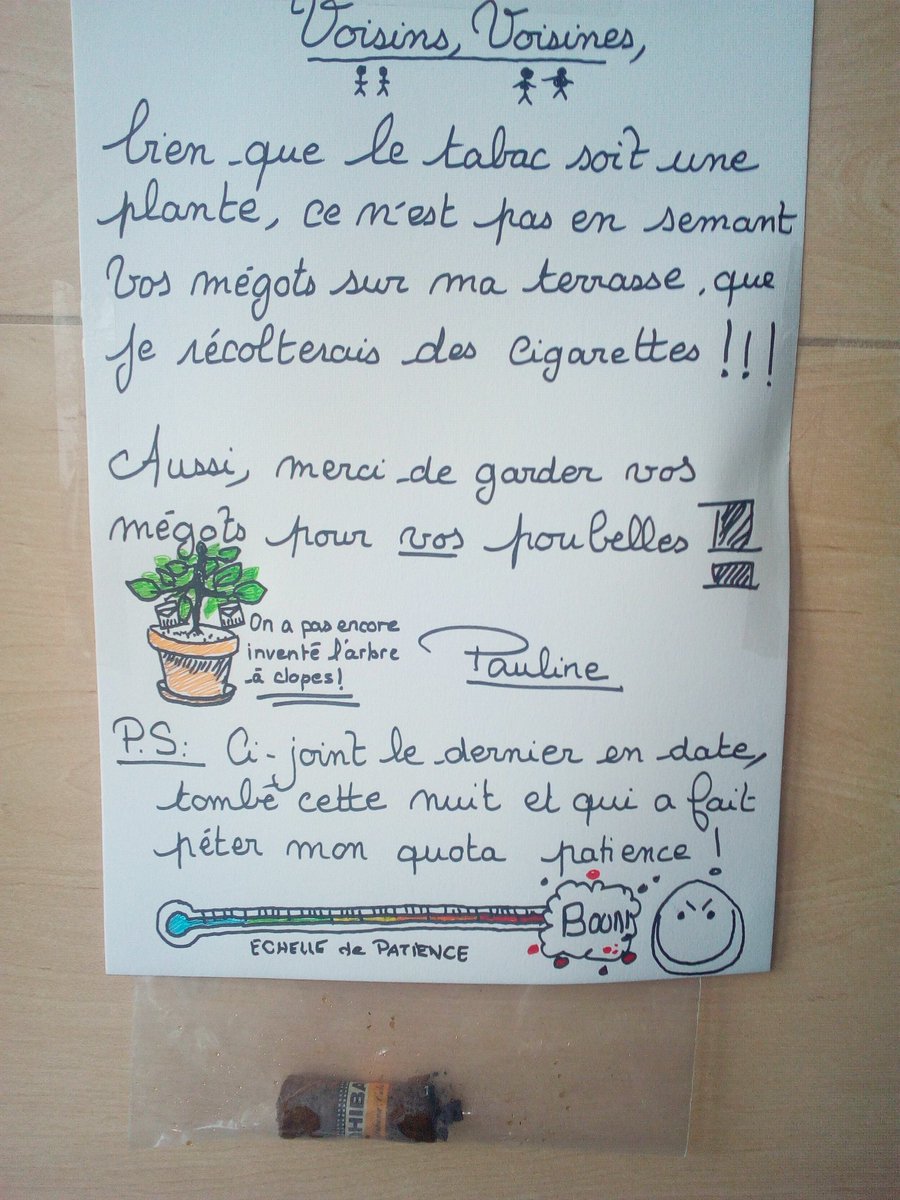 Voisins, Voisines,
bien que le tabac soit une
plante, ce n'est pas en semant
vos mégots sur ma terrasse, que
je récolterais des cigarettes !!!
Aussi, merci de garder vos
mégots pour vos poubelles !!
On a pas encore
inventé l'arbre
à clopes!
Pauline
P.S: Ci-joint le dernier en date,
tombé cette nuit et qui a fait
péter mon quota patience !
BOUM!
ECHELLE de PATIENCE
HIBA